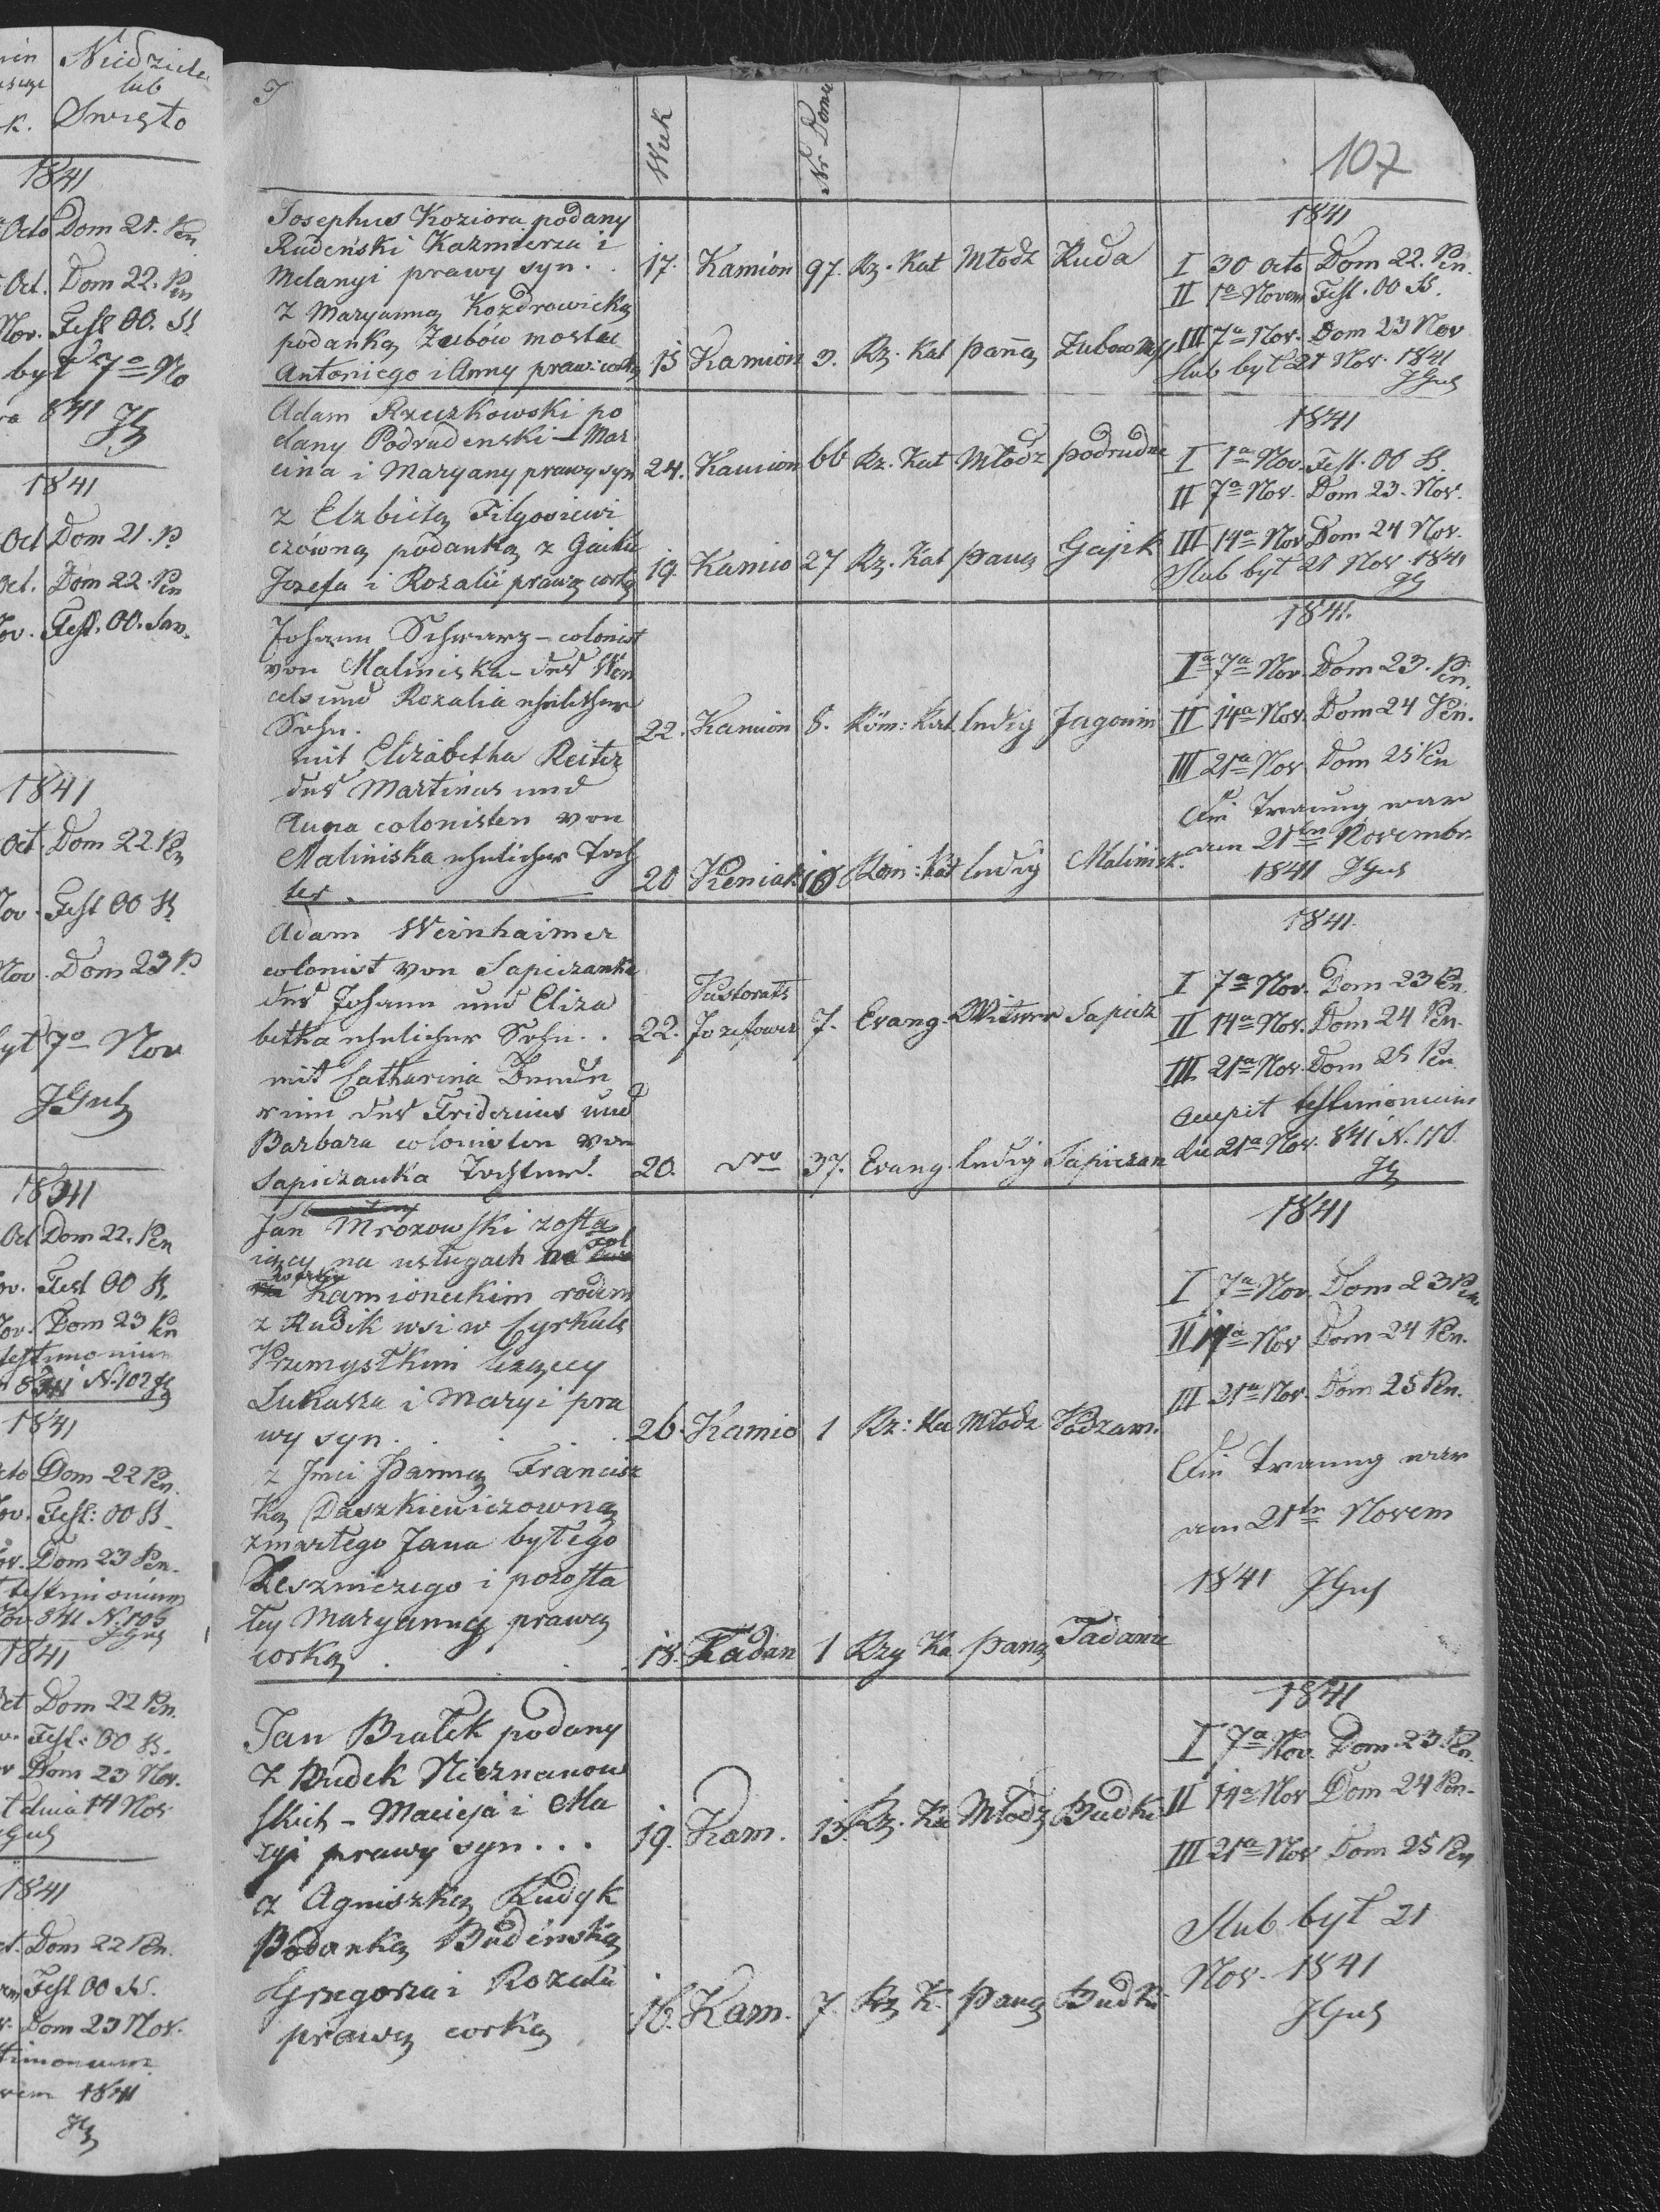 Niedziele
lub
Swięto
k.
1841
Octo Dom 21. Pen
Oct. Dom 22. Pen
Nov. Fest OO. SS
był 7º No
841
1841
Oct Dom 21. P
Oct. Dom 22 Pen
Nov. Fest. OO. San.
1841
Oct. Dom 22 Pen
Nov. Fest OO SS
Nov. Dom 23 P
7º Nov
JGus
1841
Oct Dom 22. Pen
Nov. Fest OO SS.
Nov. Dom 23 Pen
testimonium
N. 102
1841
Octo Dom 22 Pen.
Nov. Fest: OO SS
Nov. Dom 23 Pen.
testimonium
Nov 841 N. 105
JGus
1841
Oct Dom 22 Pen.
Fest: OO SS.
Dom 23 Nov.
dnia 14 Nov
JGus
1841
Dom 22 Pen.
Fest OO SS.
Dom 23 Nov.
1841
Wiek
Nr Domu
107
Josephus Koziora podany
Rudeński Kazmierza i
Melanyi prawy syn . 17. Kamion 97. Rz. Kat Młodz Ruda
z Maryanną Kozdrowicką
podanką Zubów mostu
Antoniego i Anny praw: corką 15 Kamion 3. Rz. Kat panną Zubow
1841
I 30 Octo Dom 22. Pen.
II 1ª Novem Fest. OO SS.
III 7ª Nov. Dom 23 Nov
Slub był 21 Nov. 1841
JGus
Adam Rzuzkowski po
dany Podrudenski – Mar
cina i Maryany prawy syn 24. Kamion 66 Rz. Kat Młodz podrudne
z Elzbietą Filgoviewi
czówną podanką z Gaiku
Jozefa i Rozalii prawą corką 19. Kamio 27 Rz. Kat panną Gajek
1841
I 1ª Nov. Fest. OO SS.
II 7ª Nov. Dom 23. Nov.
III 14ª Nov Dom 24 Nov.
Slub był 21 Nov. 1841
Johann Schwarz – colonist
von Maliniska – des Wen
cels und Rozalia ehelicher
Sohn. 22. Kamion 8. Röm: Kat. ledig Jagonin
mit Elizabetha Reitz
des Martinus und
Anna colonisten von
Maliniska ehelicher Toch
ter. 20 Keniak 10 Röm: Kat ledig Malinisk.
1841.
Iª 7ª Nov. Dom 23. Pen.
II 14ª Nov. Dom 24 Pen.
III 21ª Nov Dom 25 Pen
Die Trauung war
am 21ten Novembr
1841 JGus
Adam Weinhaimer
colonist von Sapiezanka
des Johann und Eliza
betha ehelicher Sohn . . 22. Pastorats Jozefower 7. Evang. Witwer Sapiez
mit Catharina
des Fridericus und
Barbara colonisten von
Sapiezanka Tochter. 20. dto 37. Evang. ledig Sapiezan
1841.
I 7ª Nov. Dom 23 Pen.
II 14ª Nov. Dom 24 Pen.
III 21ª Nov. Dom 25 Pen
accepit testimonium
die 21ª Nov. 841 N. 110.
Jan Mrozowski zosta
iący na usługach
Kamioneckim rodem
z Rudik wsi w Cyrkule
Przemyslkim leżący
Lukasza i Maryi pra
wy syn . . . 26. Kamio 1 Rz: Ka Młodz Podzam.
z Jmci Panną Francisz
ką Daszkiewiczowną
zmarłego Jana byłego
Leszniczego i pozosta
łey Maryanny prawą
corką . . . 18. Tadan 1 Rzy Ka panną Tadanie
1841
I 7ª Nov. Dom 23 Pen
II 14ª Nov Dom 24 Pen.
III 21ª Nov. Dom 25 Pen.
Die Trauung war
am 21ten Novem
1841 JGus
Jan Białek podany
z Budek Nieznanow
skich – Macieja i Ma
ryi prawy syn . . . 19. Kam. 13. Rz. Ka Młodz Budki
z Agnieszką Rudyk
Podanką Budeńską
Grzegorza i Rozalii
prawą corką 16. Kam. 7. Rz K. panną Budki
1841
I 7ª Nov. Dom. 23 Pen.
II 14ª Nov Dom 24 Pen.
III 21ª Nov Dom 25 Pen
Slub był 21
Nov. 1841
JGus